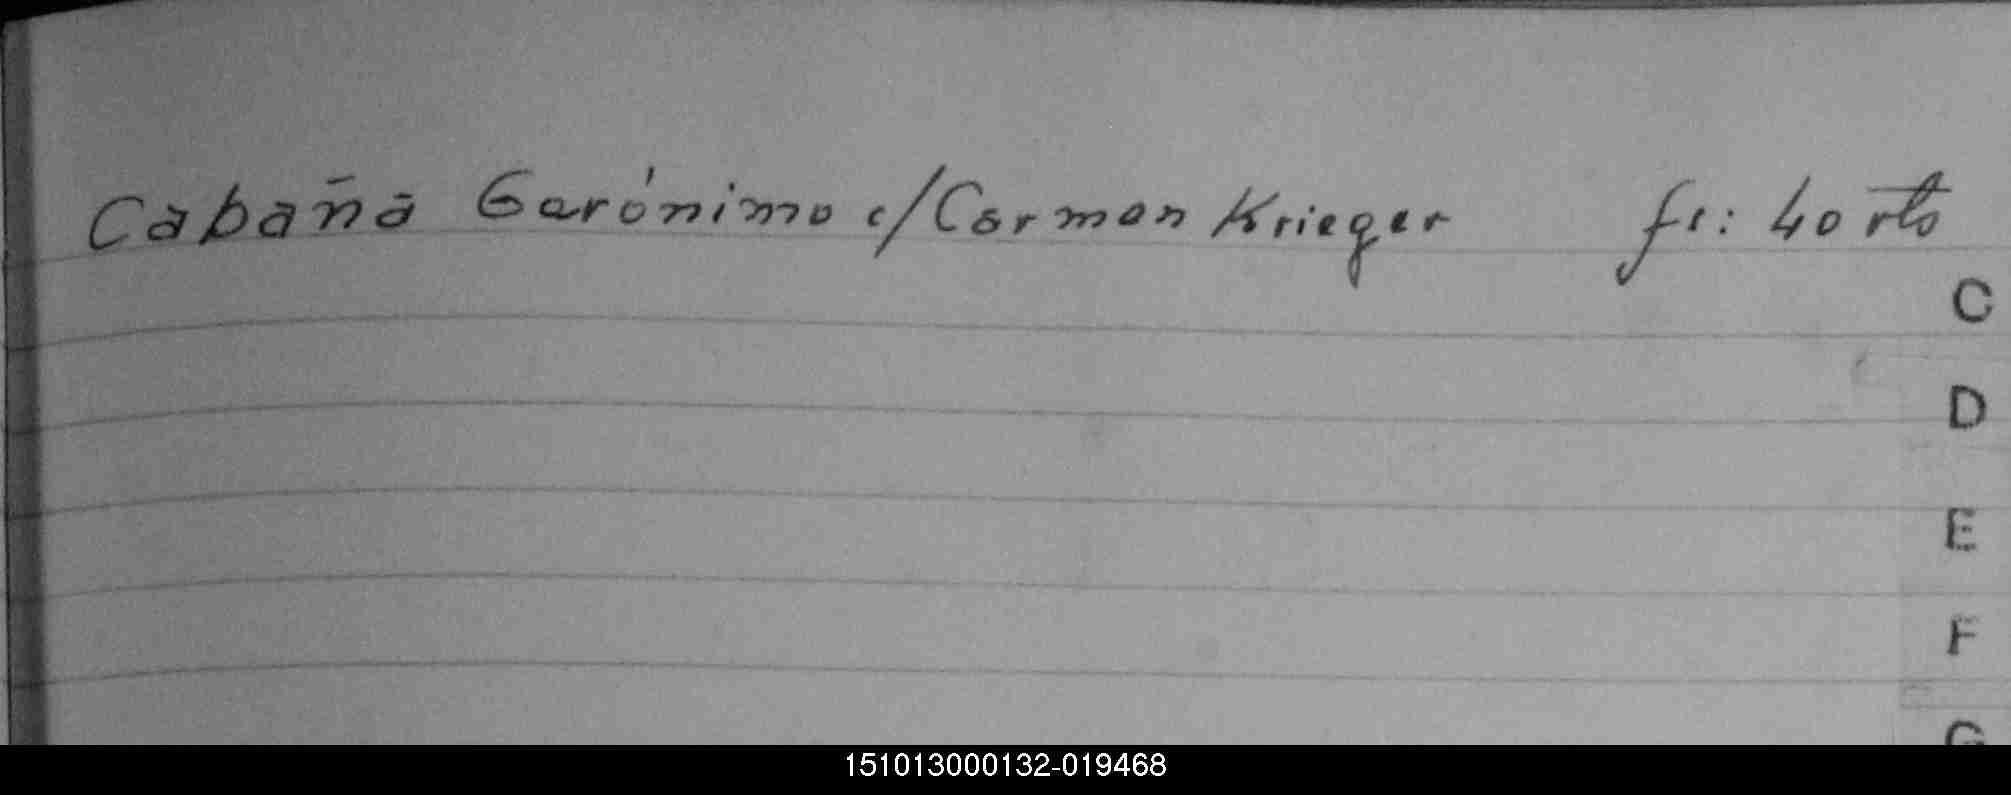 Cabaña Gerónimo c/Carmen Krieger fs: 40 vto
C
D
E
F
G
151013000132-019468